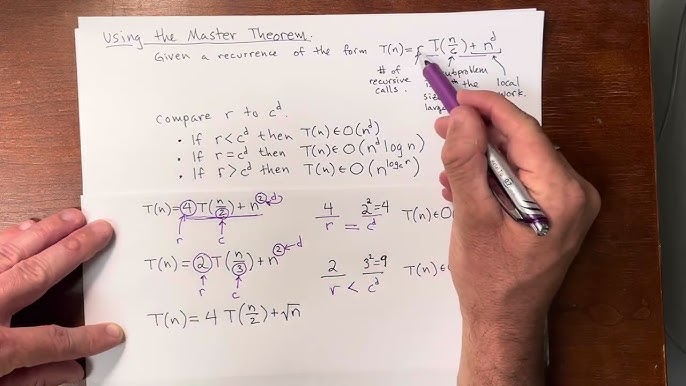 Using the Master Theorem.
Given a recurrence of the form T(n) = r T(n/c) + n^d
# of recursive calls.
local work.
Compare r to c^d.
• If r < c^d then T(n) ∈ O(n^d)
• If r = c^d then T(n) ∈ O(n^d log n)
• If r > c^d then T(n) ∈ O(n^(log_c r))
T(n) = 4 T(n/2) + n^2 ← d
r c
4 2^2=4 T(n) ∈ O
r = c^d
T(n) = 2 T(n/3) + n^2 ← d
r c
2 3^2=9 T(n) ∈ O
r < c^d
T(n) = 4 T(n/2) + √n